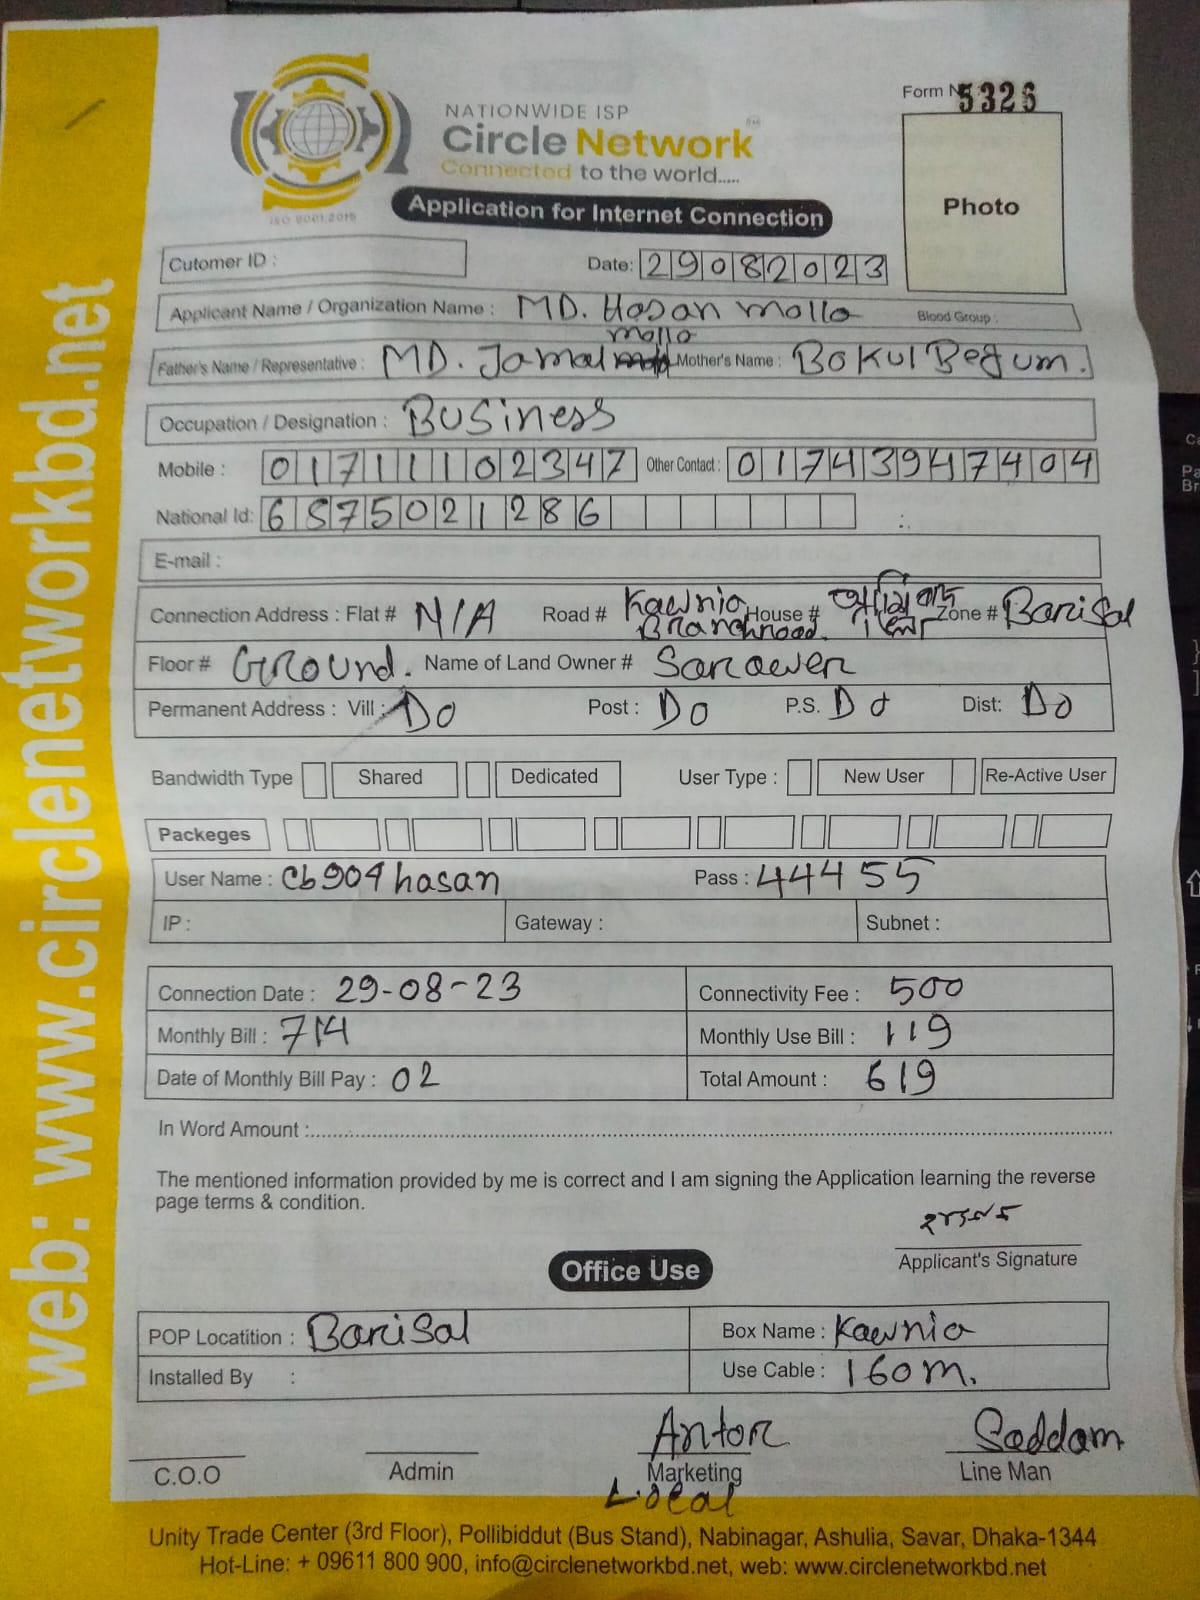 Form No 5326
NATIONWIDE ISP
Circle Network
Connected to the world.....
ISO 9001:2015
Photo
Application for Internet Connection
Cutomer ID :
Date: 29082023
Applicant Name / Organization Name : MD. Hasan Molla Blood Group :
Father's Name / Representative : MD. Jamal molla Mother's Name : Bokul Begum.
Occupation / Designation : Business
Mobile : 01711102347 Other Contact : 01743947404
National Id: 6875021286
E-mail :
Connection Address : Flat # N/A Road # Kawnia Branchroad. House # Zone # Barisal
Floor # Ground. Name of Land Owner # Sarower
Permanent Address : Vill : Do Post : Do P.S. Do Dist: Do
Bandwidth Type Shared Dedicated User Type : New User Re-Active User
Packeges
User Name : cb904hasan Pass : 44455
IP : Gateway : Subnet :
Connection Date : 29-08-23 Connectivity Fee : 500
Monthly Bill : 714 Monthly Use Bill : 119
Date of Monthly Bill Pay : 02 Total Amount : 619
In Word Amount :
The mentioned information provided by me is correct and I am signing the Application learning the reverse
page terms & condition.
Applicant's Signature
Office Use
POP Locatition : Barisal Box Name : Kawnia
Installed By : Use Cable : 160m.
Antor Saddam
C.O.O Admin Marketing Line Man
Local
Unity Trade Center (3rd Floor), Pollibiddut (Bus Stand), Nabinagar, Ashulia, Savar, Dhaka-1344
Hot-Line: + 09611 800 900, info@circlenetworkbd.net, web: www.circlenetworkbd.net
web: www.circlenetworkbd.net